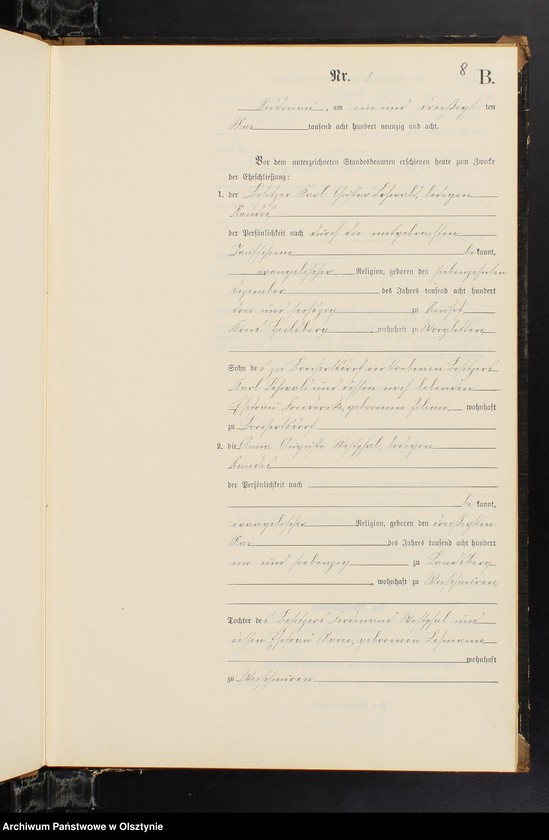 8
Nr. B.
, am ein und dreißigsten
Mai tausend acht hundert neunzig und acht.
Vor dem unterzeichneten Standesbeamten erschienen heute zum Zwecke
der Eheschließung:
1. der Besitzer Karl Gustav Lehwald, ledigen
Standes
der Persönlichkeit nach durch die mitgebrachten
bekannt,
evangelischer Religion, geboren den siebenzehnten
Dezember des Jahres tausend acht hundert
drei und sechszig zu
Kreis Heilsberg, wohnhaft zu Worglitten
Sohn des zu Borchertsdorf verstorbenen Besitzers
Karl Lehwald und dessen noch lebenden
Ehefrau Friederike, geborenen wohnhaft
zu Borchertsdorf
2. die Anna Auguste Westphal, ledigen
Standes
der Persönlichkeit nach
bekannt,
evangelischer Religion, geboren den dreißigsten
Mai des Jahres tausend acht hundert
ein und siebenzig zu Landsberg
, wohnhaft zu
Tochter des Besitzers Ferdinand Westphal und
dessen Ehefrau Marie, geborenen Lehmann
wohnhaft
zu
Archiwum Państwowe w Olsztynie